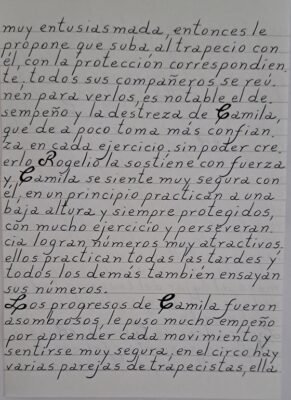 muy entusiasmada, entonces le
propone que suba al trapecio con
él, con la protección correspondien
te, todos sus compañeros se reú_
nen para verlos, es notable el de_
sempeño y la destreza de Camila,
que de a poco toma más confian_
za en cada ejercicio, sin poder cre_
erlo Rogelio la sostiene con fuerza
y Camila se siente muy segura con
él, en un principio practican a una
baja altura y siempre protegidos,
con mucho ejercicio y perseveran_
cia logran números muy atractivos.
ellos practican todas las tardes y
todos los demás también ensayan
sus números.
Los progresos de Camila fueron
asombrosos, le puso mucho empeño
por aprender cada movimiento y
sentirse muy segura, en el circo hay
varias parejas de trapecistas, ella